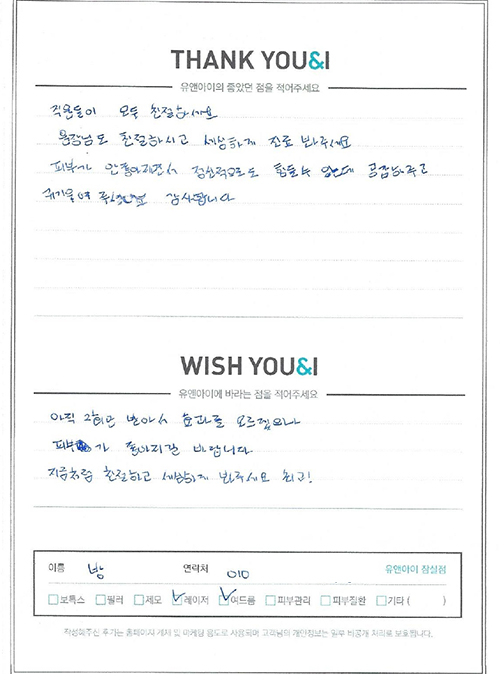 THANK YOU&I
유앤아이의 좋았던 점을 적어주세요
직원들이 모두 친절하세요
원장님도 친절하시고 세심하게 진료 봐주세요
피부가 안좋아지면서 정신적으로도 힘들수 있는데 공감해주고
귀기울여 감사합니다
WISH YOU&I
유앤아이에 바라는 점을 적어주세요
아직 받아서 효과를 모르겠으나
피부가 좋아지길 바랍니다
지금처럼 친절하고 세심하게 봐주세요 최고!
이름 방 연락처 010 유앤아이 잠실점
보톡스 필러 제모 레이저 여드름 피부관리 피부질환 기타 ( )
작성해주신 후기는 홈페이지 게재 및 마케팅 용도로 사용되며 고객님의 개인정보는 일부 비공개 처리로 보호됩니다.